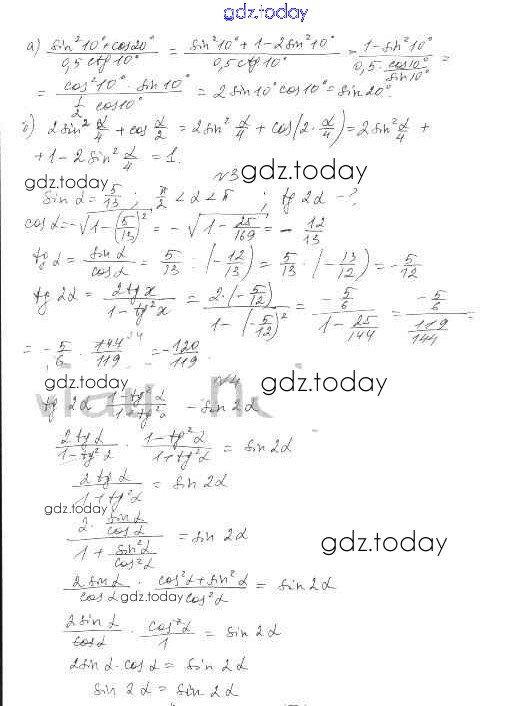 gdz.today
а) (sin²10°+cos20°)/(0,5 ctg10°) = (sin²10°+1-2sin²10°)/(0,5 ctg10°) = (1-sin²10°)/(0,5·cos10°/sin10°) =
= (cos²10°·sin10°)/(1/2 cos10°) = 2 sin10° cos10° = sin20°.
б) 2sin² α/4 + cos α/2 = 2sin² α/4 + cos(2·α/4) = 2sin² α/4 +
+ 1 - 2sin² α/4 = 1.
gdz.today
№3
gdz.today
sin α = 5/13 ; π/2 < α < π ; tg 2α - ?
cos α = -√(1-(5/13)²) = -√(1-25/169) = - 12/13
tg α = sin α/cos α = 5/13 : (-12/13) = 5/13 · (-13/12) = -5/12
tg 2α = 2tg x/(1-tg²x) = 2·(-5/12)/(1-(-5/12)²) = (-5/6)/(1-25/144) = (-5/6)/(119/144) =
= -5/6 · 144/119 = -120/119.
gdz.today
№4
gdz.today
tg 2α (1-tg²α)/(1+tg²α) - sin 2α
2tg α/(1-tg²α) · (1-tg²α)/(1+tg²α) = sin 2α
2tg α/(1+tg²α) = sin 2α
gdz.today
(2·sin α/cos α)/(1+sin²α/cos²α) = sin 2α
gdz.today
2sin α/cos α · (cos²α+sin²α)/cos²α = sin 2α
gdz.today
2sin α/cos α · cos²α/1 = sin 2α
2sin α·cos α = sin 2α
sin 2α = sin 2α